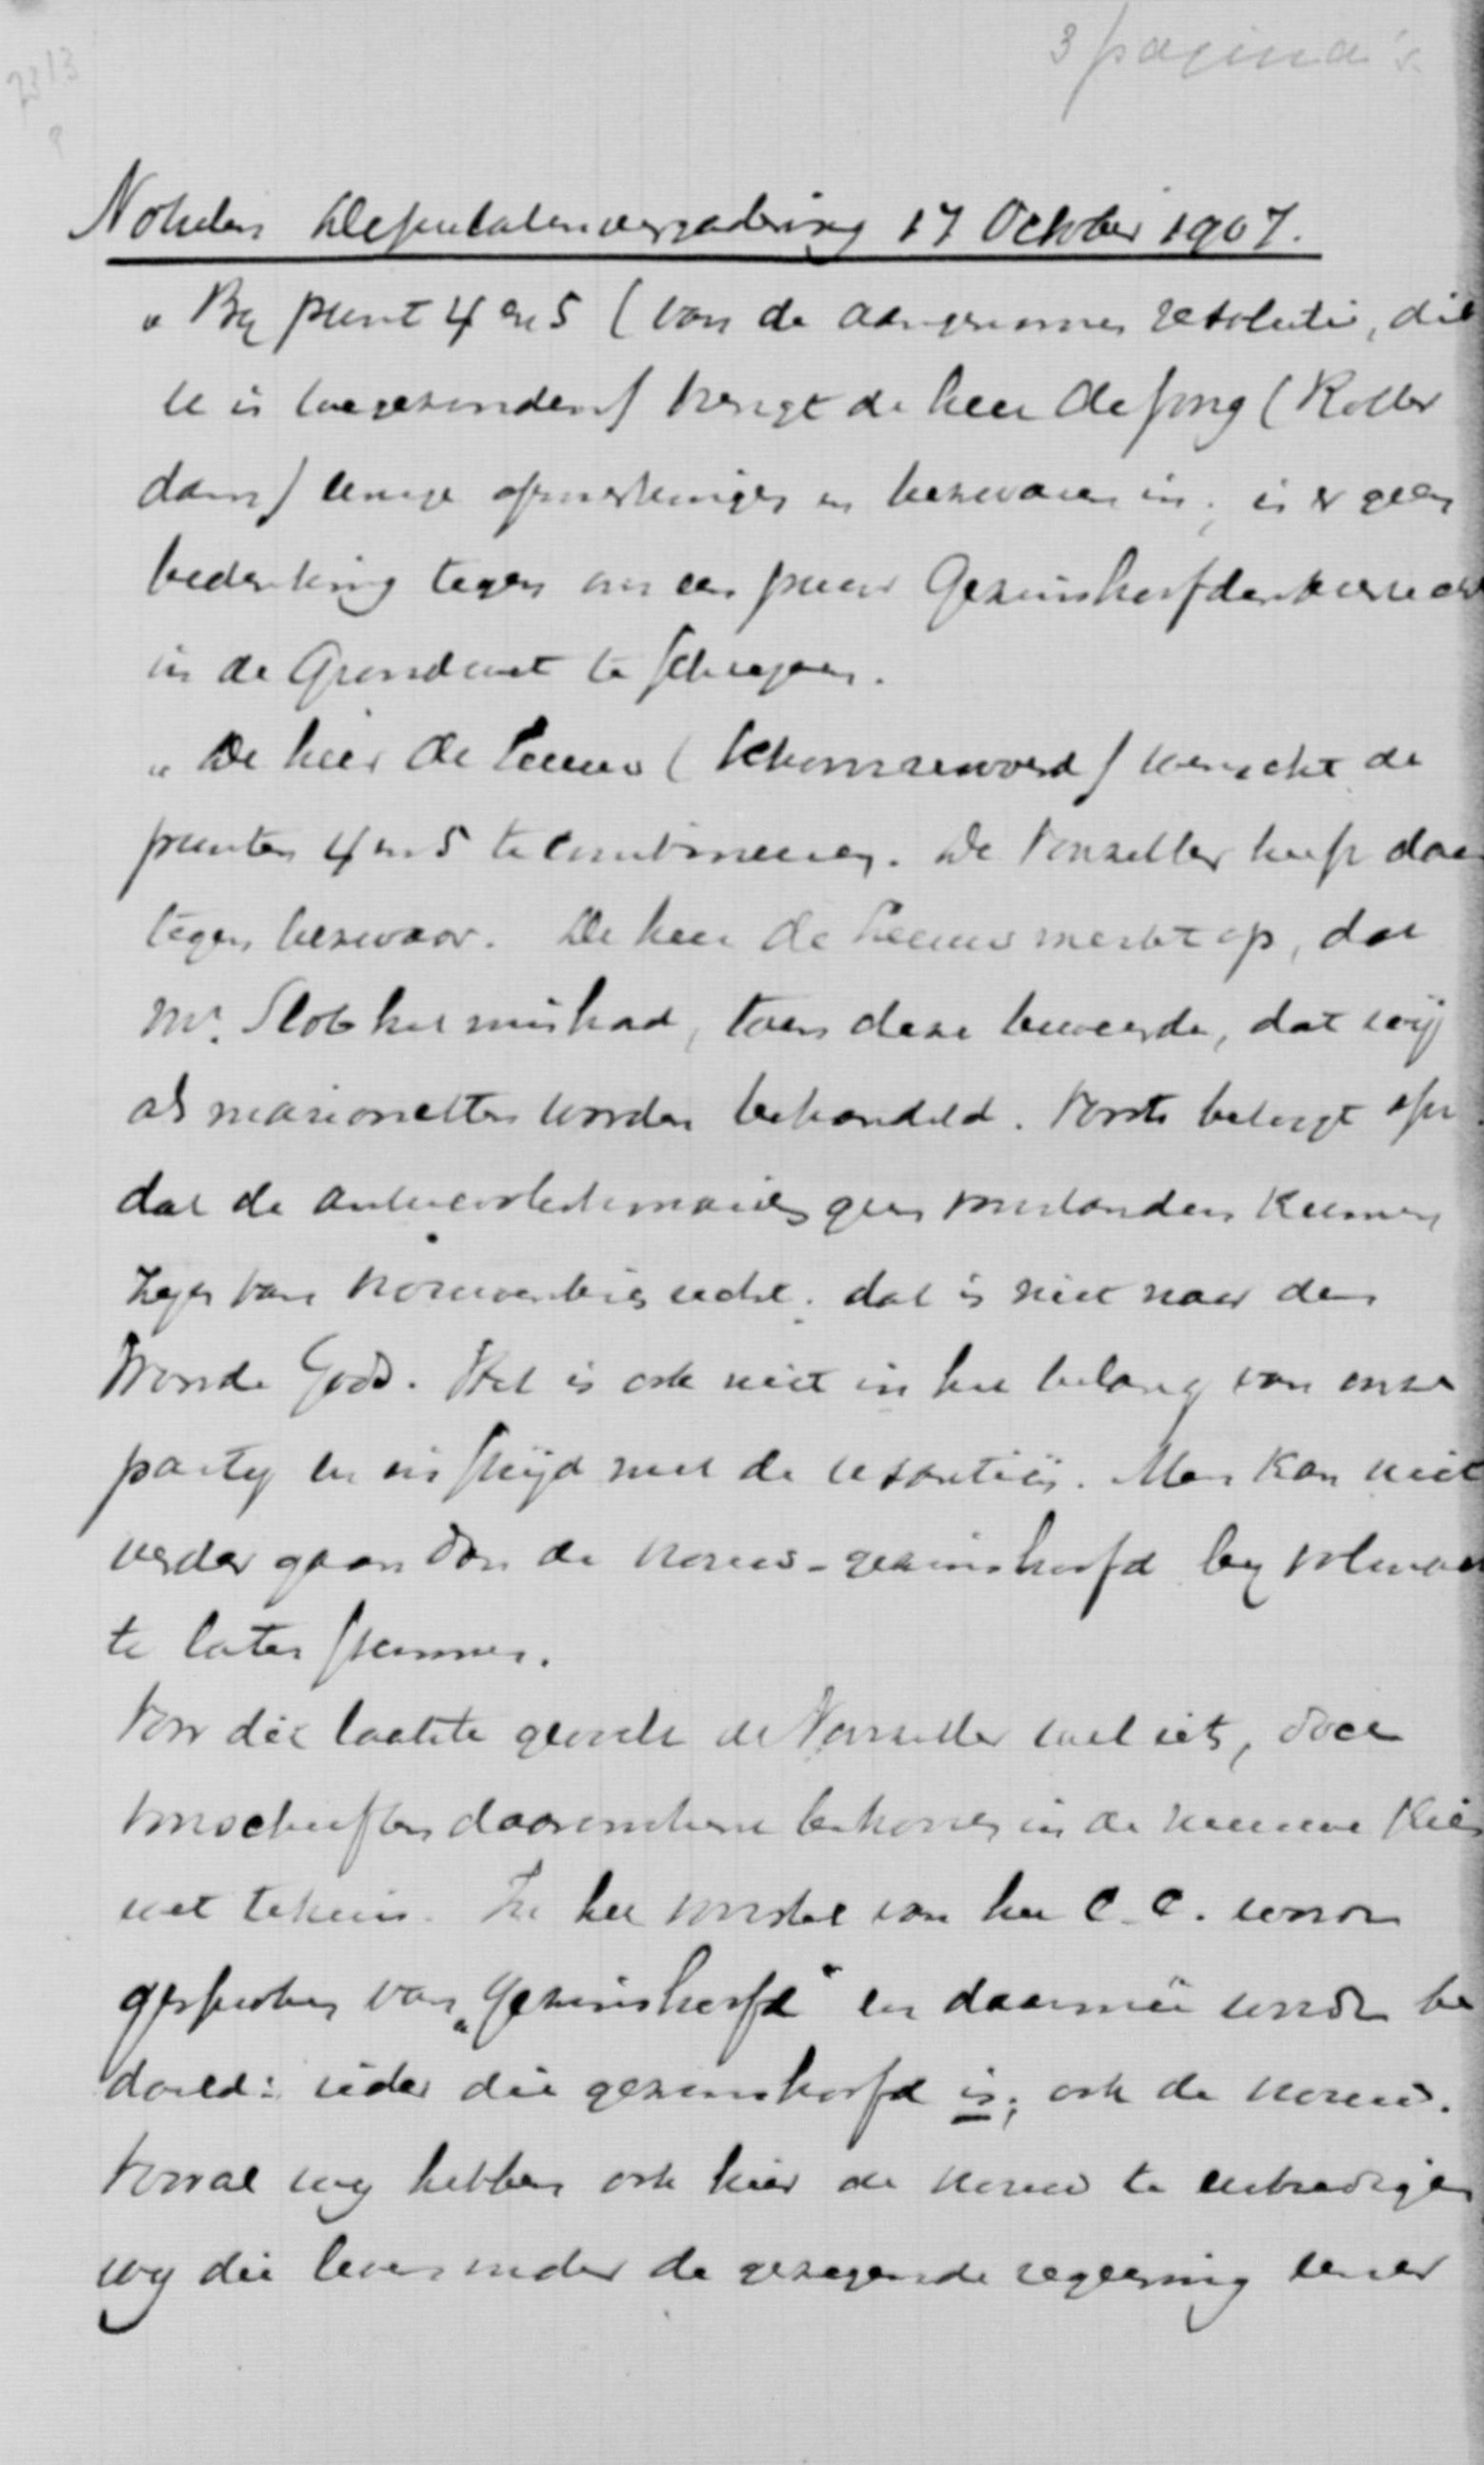 3 pagina's
2313
Notulen Deputatenvergadering 17 October 1907.
„ By punt 4 en 5 (van de aangenomen resolutie, die
U is toegezonden) brengt de heer de Jong (Rotter
dam) eenige opmerkingen en bezwaren in; is er geen
bedenking tegen om een puur Gezinshoofdenkiesrecht
in de Grondwet te schrijven.
„ De heer de Leeuw (Schoonrewoerd) wenscht de
punten 4 en 5 te combineeren. De Voorzitter heeft daar
tegen bezwaar. De heer de Leeuw merkt op, dat
Mr. Slob het mis had, toen deze beweerde, dat wij
als marionetten worden behandeld. Voorts betoogt spr.
dat de antirevolutionairen geen voorstanders kunnen
zijn van vrouwenkiesrecht; dat is niet naar den
Woorde Gods. Het is ook niet in het belang van onze
party en in stryd met de usantiën. Men kan niet
verder gaan dan de vrouw-gezinshoofd by volmacht
te laten stemmen.
Voor dit laatste gevoelt de Voorzitter wel iets, doch
voorschriften daaromtrent behooren in de nieuwe Kies
wet tehuis. In het voorstel van het C.C. wordt
gesproken van „Gezinshoofd" en daarmeê wordt be
doeld: ieder die gezinshoofd is; ook de vrouw.
Vooral wy hebben ook hier de vrouw te eerbiedigen
wy die leven onder de gezegende regeering eener